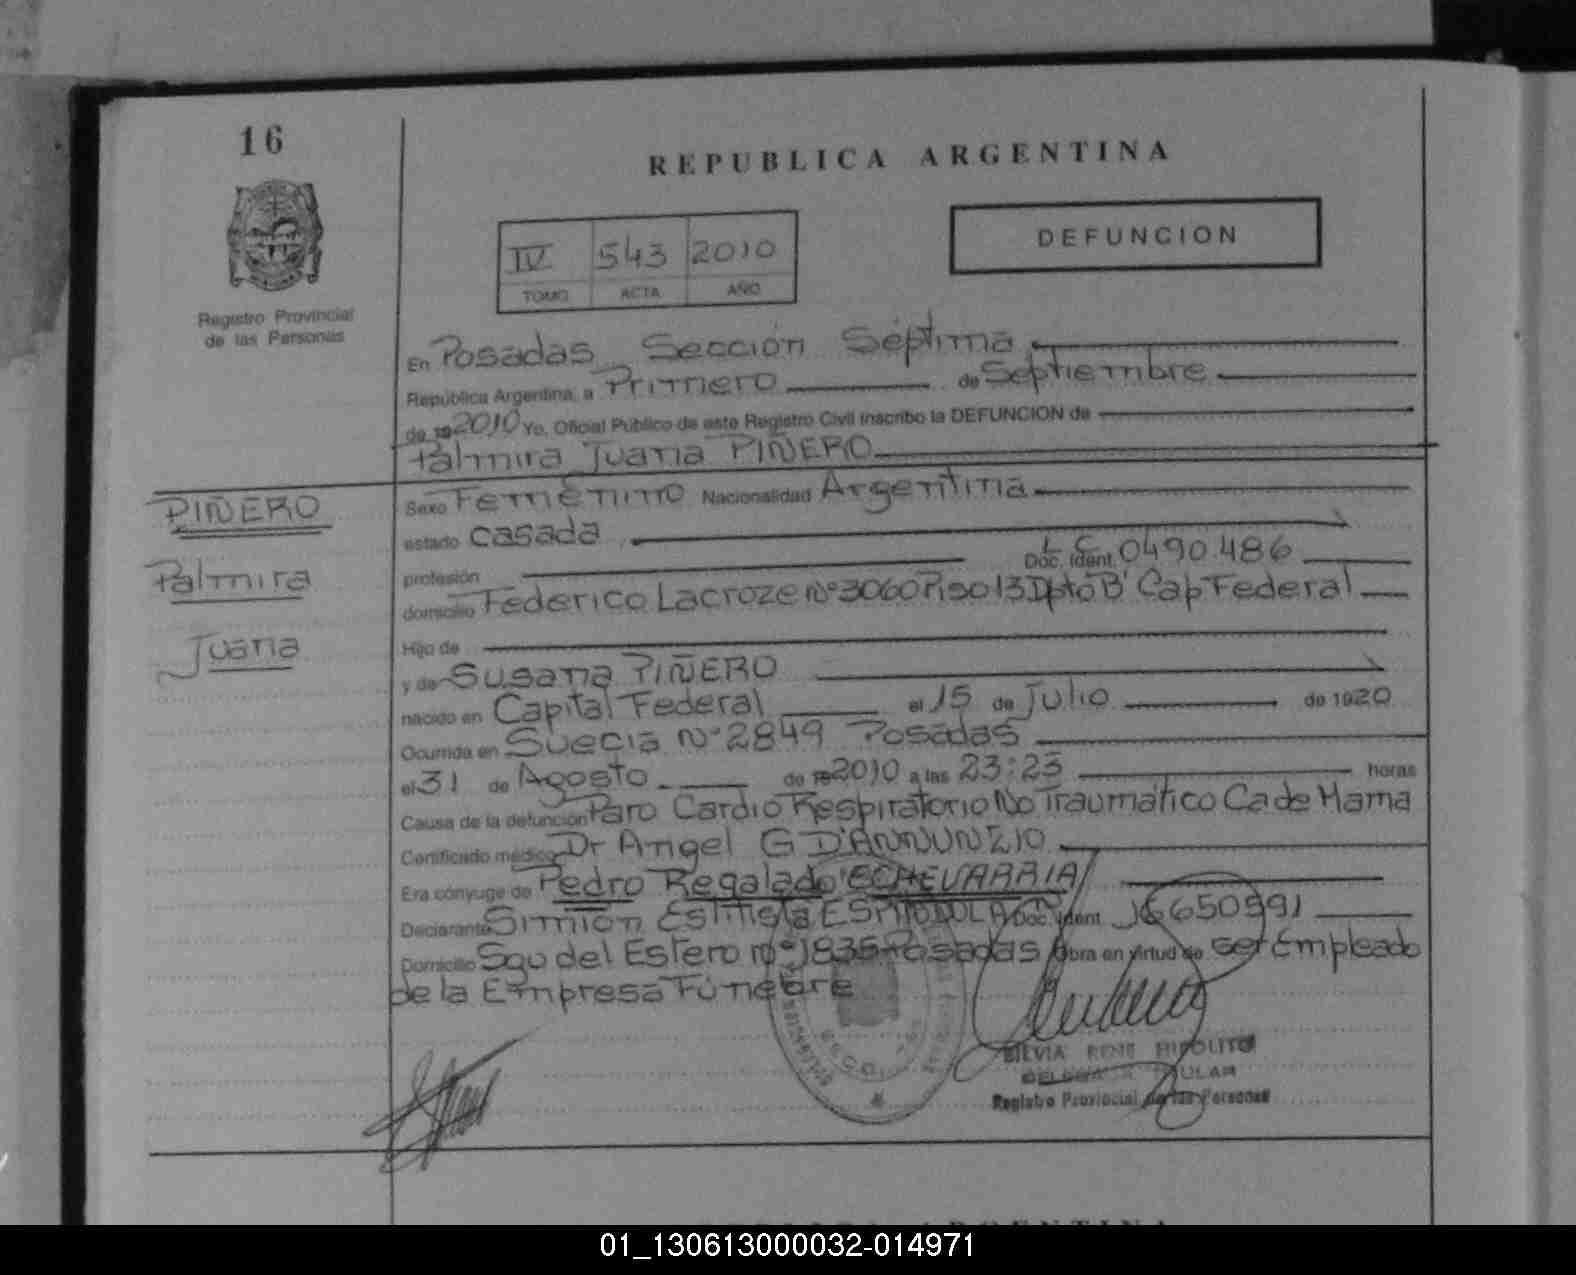 16
REPUBLICA ARGENTINA
Registro Provincial
de las Personas
IV 543 2010
TOMO ACTA AÑO
DEFUNCION
En Posadas Sección Séptima
República Argentina, a Primero de Septiembre
de 19 2010 Yo, Oficial Público de este Registro Civil inscribo la DEFUNCION de
Palmira Juana PIÑERO
PIÑERO
Palmira
Juana
Sexo Femenino Nacionalidad Argentina
estado casada
profesión Doc. Ident. L C 0490.486
domicilio Federico Lacroze Nº 3060 Piso 13 Dpto B Cap Federal
Hijo de
y de Susana PIÑERO
nacido en Capital Federal el 15 de Julio de 1920
Ocurrida en Suecia Nº 2849 Posadas
el 31 de Agosto de 19 2010 a las 23:23 horas
Causa de la defunción Paro Cardio Respiratorio No Traumático Ca de Mama
Certificado médico Dr Angel G D'ANNUNZIO
Era cónyuge de Pedro Regalado ECHEVARRIA
Declarante ESPINDOLA Doc. Ident.
Domicilio Sgo del Estero nº 1835 Posadas Obra en virtud de ser Empleado
de la Empresa Fúnebre
SILVIA RENE HIPOLITO
DELEGADA TITULAR
Registro Provincial de las Personas
REPUBLICA ARGENTINA
01_130613000032-014971